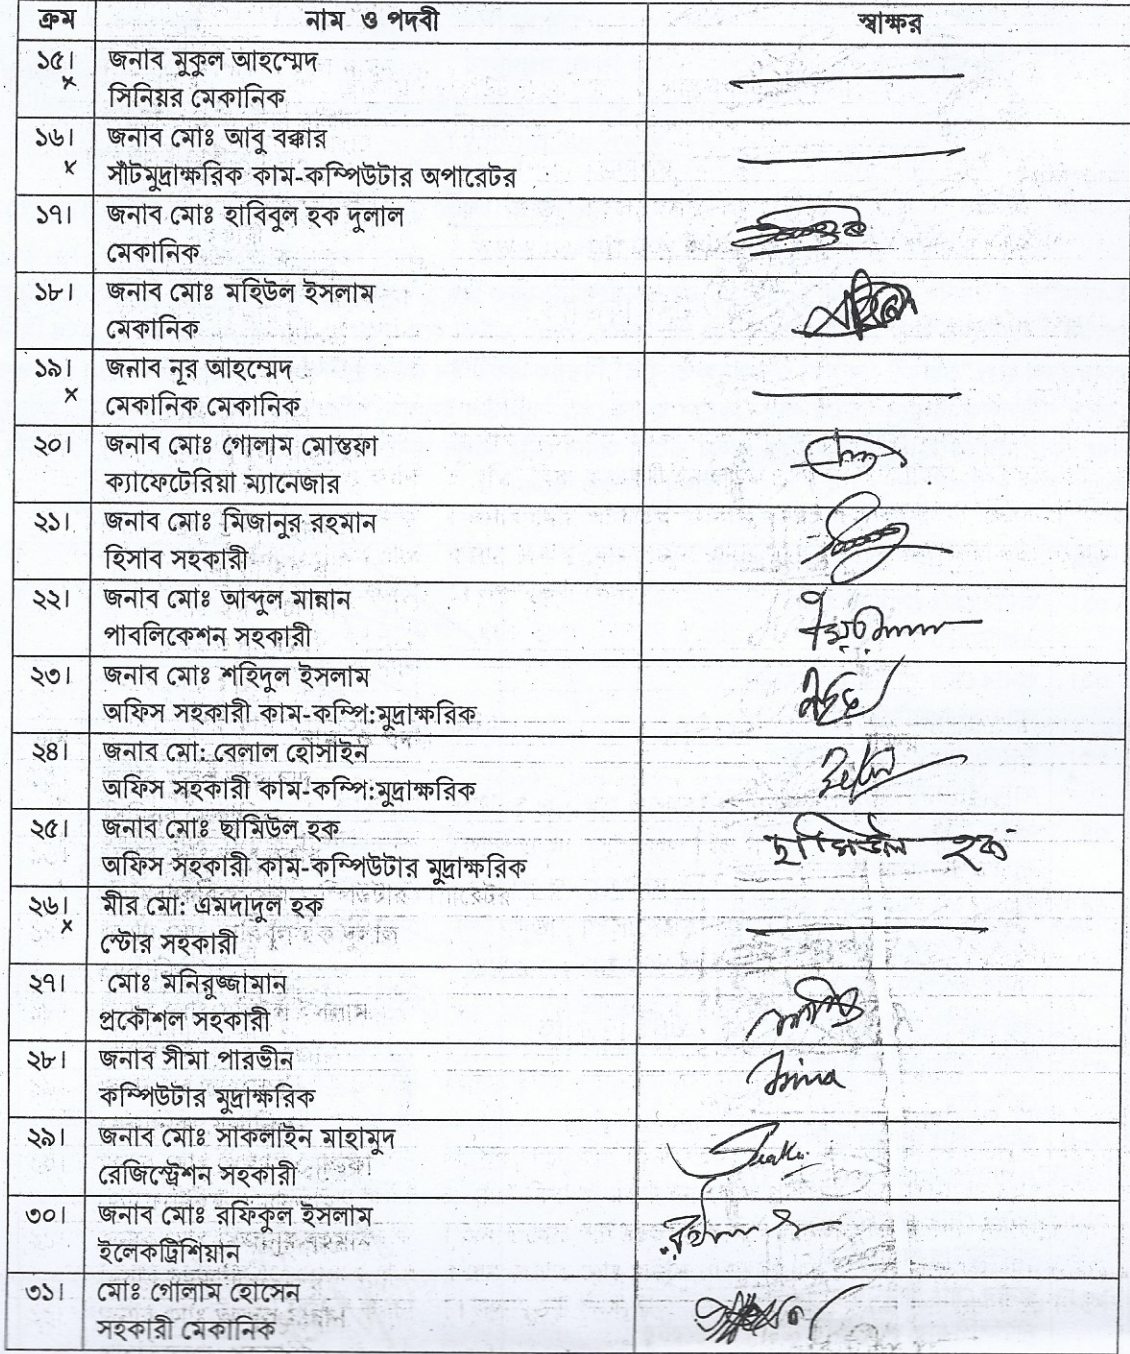 ক্রম নাম ও পদবী স্বাক্ষর
১৫। জনাব মুকুল আহম্মেদ
x সিনিয়র মেকানিক
১৬। জনাব মোঃ আবু বক্কার
x সাঁটমুদ্রাক্ষরিক কাম-কম্পিউটার অপারেটর
১৭। জনাব মোঃ হাবিবুল হক দুলাল
মেকানিক
১৮। জনাব মোঃ মহিউল ইসলাম
মেকানিক
১৯। জনাব নূর আহম্মেদ
x মেকানিক মেকানিক
২০। জনাব মোঃ গোলাম মোস্তফা
ক্যাফেটেরিয়া ম্যানেজার
২১। জনাব মোঃ মিজানুর রহমান
হিসাব সহকারী
২২। জনাব মোঃ আব্দুল মান্নান
পাবলিকেশন সহকারী
২৩। জনাব মোঃ শহিদুল ইসলাম
অফিস সহকারী কাম-কম্পি:মুদ্রাক্ষরিক
২৪। জনাব মো: বেলাল হোসাইন
অফিস সহকারী কাম-কম্পি:মুদ্রাক্ষরিক
২৫। জনাব মোঃ ছামিউল হক ছামিউল হক
অফিস সহকারী কাম-কম্পিউটার মুদ্রাক্ষরিক
২৬। মীর মো: এমদাদুল হক
x স্টোর সহকারী
২৭। মোঃ মনিরুজ্জামান
প্রকৌশল সহকারী
২৮। জনাব সীমা পারভীন
কম্পিউটার মুদ্রাক্ষরিক
২৯। জনাব মোঃ সাকলাইন মাহামুদ
রেজিস্ট্রেশন সহকারী
৩০। জনাব মোঃ রফিকুল ইসলাম
ইলেকট্রিশিয়ান
৩১। মোঃ গোলাম হোসেন
সহকারী মেকানিক